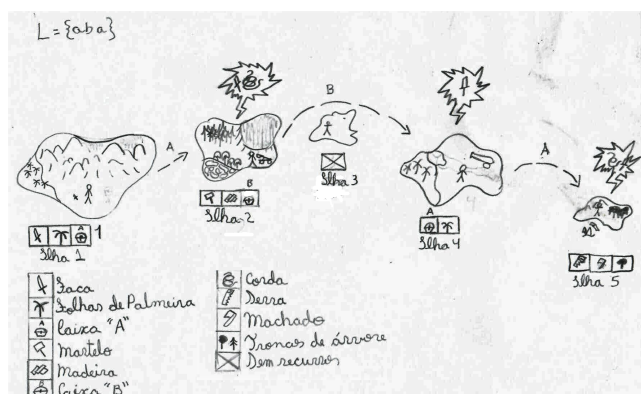 L = {aba}
A
B
A
B
A
1
Ilha 1
Ilha 2
Ilha 3
Ilha 4
Ilha 5
Faca
Folhas de Palmeira
Caixa "A"
Martelo
Madeira
Caixa "B"
Corda
Serra
Machado
Troncos de árvore
Sem recursos